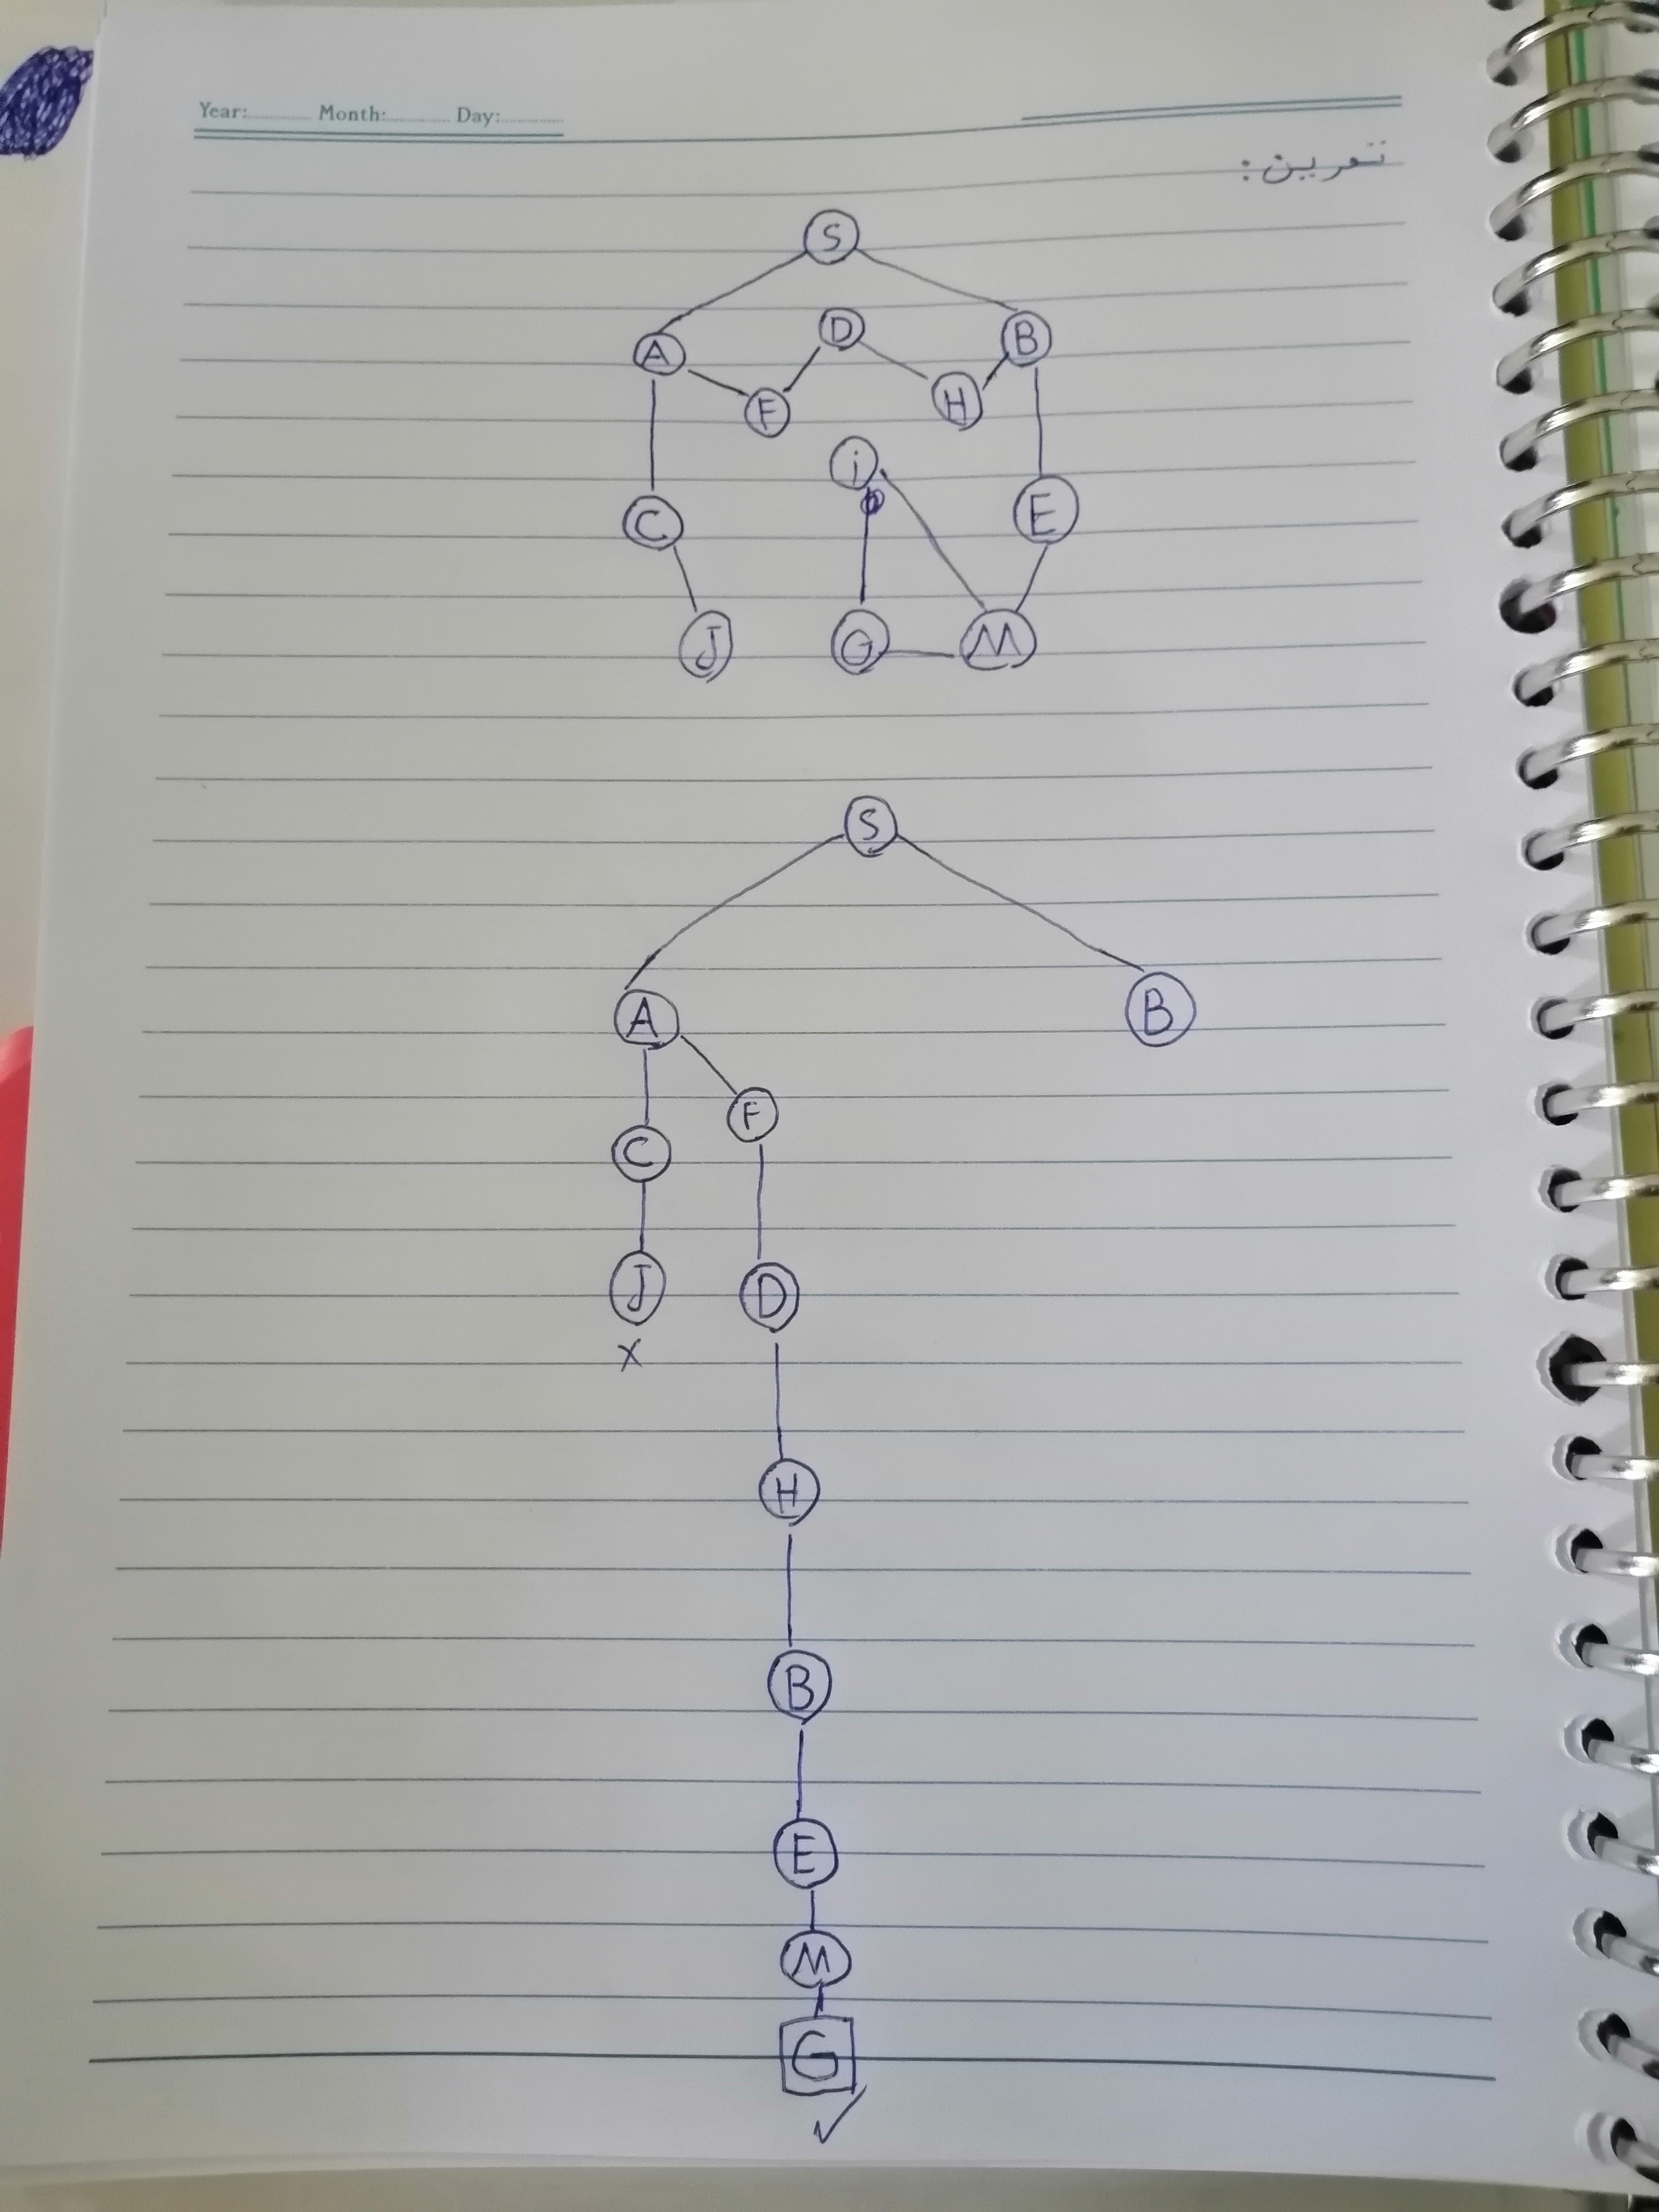 Year:............ Month:............ Day:............
تمرین:
S
A D B
F H
i
C E
J G M
S
A B
F
C
J D
X
H
B
E
M
G
✓